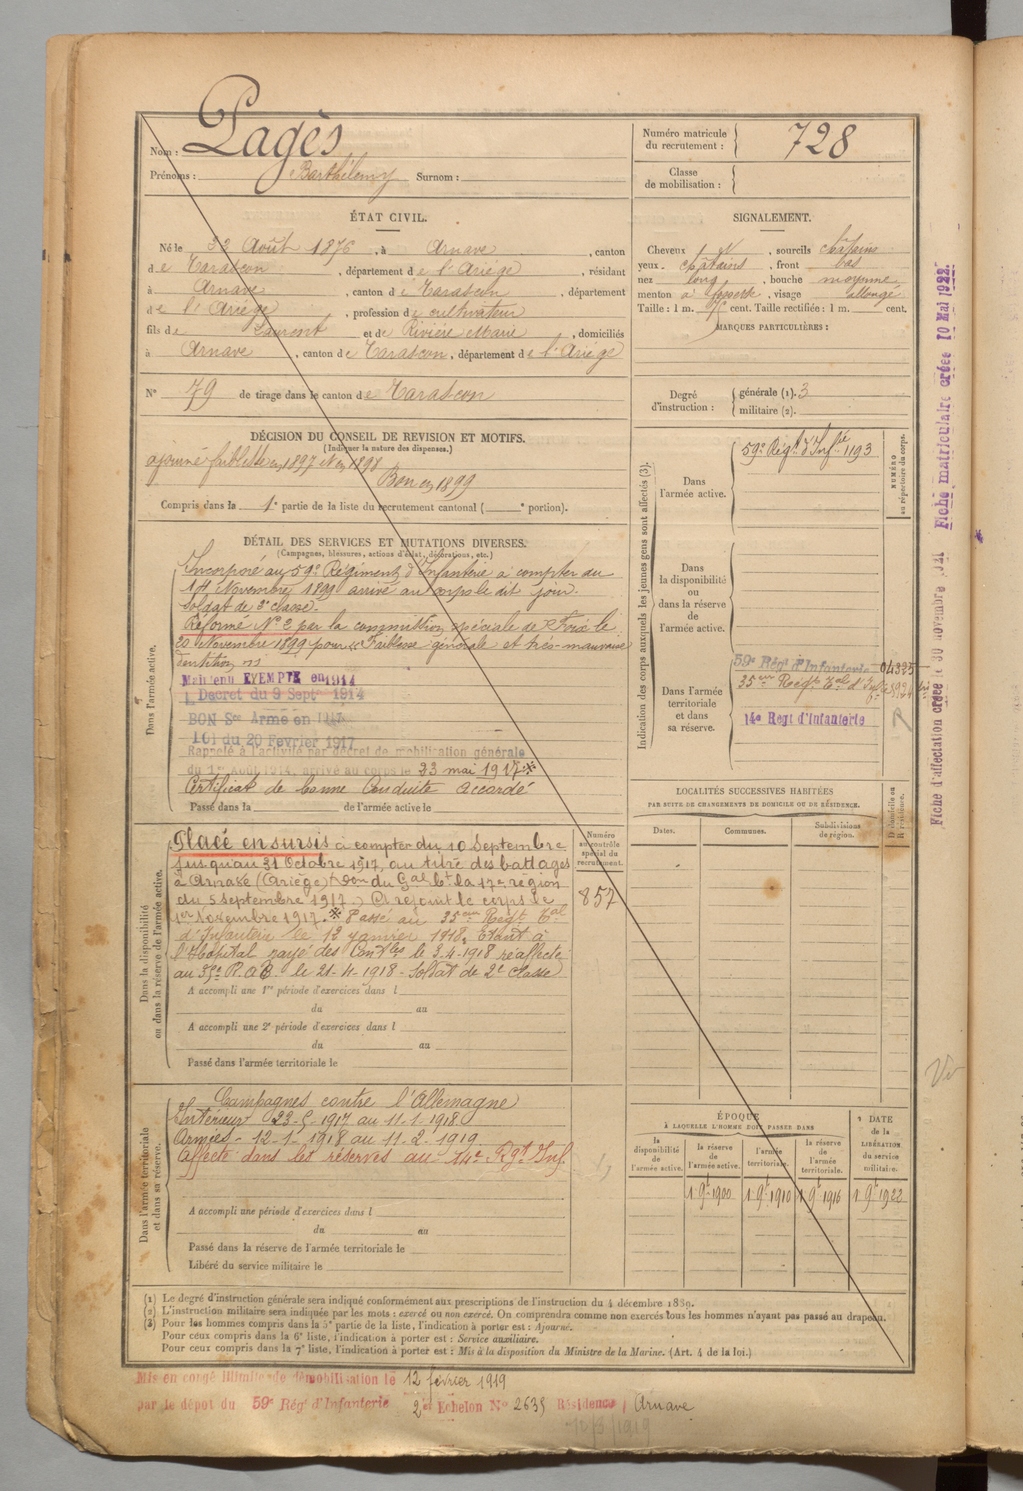 Nom : Pagès
Prénoms : Barthélemy Surnom :
Numéro matricule du recrutement : 728
Classe de mobilisation :
ÉTAT CIVIL.
Né le Août 1876, à Arnave, canton
de Tarascon, département de l'Ariège, résidant
à Arnave, canton de Tarascon, département
de l'Ariège, profession de cultivateur
fils de Laurent et de Rivière Marie, domiciliés
à Arnave, canton de Tarascon, département de l'Ariège
N° 79 de tirage dans le canton de Tarascon
SIGNALEMENT.
Cheveux N, sourcils châtains
yeux châtains, front bas
nez long, bouche moyenne
menton à fossette, visage allongé
Taille : 1 m. cent. Taille rectifiée : 1 m. cent.
MARQUES PARTICULIÈRES :
Degré d'instruction : générale (1). 3
militaire (2).
DÉCISION DU CONSEIL DE REVISION ET MOTIFS.
(Indiquer la nature des dispenses.)
ajourné faiblesse en 1897 et en 1898
Bon en 1899
Compris dans la 1e partie de la liste du recrutement cantonal ( e portion).
DÉTAIL DES SERVICES ET MUTATIONS DIVERSES.
(Campagnes, blessures, actions d'éclat, décorations, etc.)
Dans l'armée active.
Incorporé au 59e Régiment d'Infanterie à compter du
14 Novembre 1899 arrivé au corps le dit jour.
Soldat de 2e classe.
Réformé N° 2 par la commission spéciale de Foix le
20 Novembre 1899 pour "Faiblesse générale et très-mauvaise
dentition"
Maintenu EXEMPTE en 1914
Décret du 9 Septre 1914
BON Sce Armé en 1917
Loi du 20 Février 1917
Rappelé à l'activité par décret de mobilisation générale
du 1er août 1914, arrivé au corps le 23 mai 1917 *
Certificat de bonne Conduite accordé
Passé dans la de l'armée active le
Dans la disponibilité ou dans la réserve de l'armée active.
Placé en sursis à compter du 10 Septembre
jusqu'au 31 Octobre 1917, au titre des battages
à Arnave (Ariège) Don du Gal Ct la 17e région
du 5 Septembre 1917. A rejoint le corps le
1er Novembre 1917. * Passé au 35em Regt Tal
d'Infanterie le 12 janvier 1918. Etant à
l'Hopital rayé des Contles le 3.4.1918 réaffecté
au 35e R.A.C. le 21-4-1918 - Soldat de 2e classe
A accompli une 1re période d'exercices dans l
du au
A accompli une 2e période d'exercices dans l
du au
Passé dans l'armée territoriale le
Numéro au contrôle spécial du recrutement.
857
Dans l'armée territoriale et dans sa réserve.
Campagnes contre l'Allemagne
Intérieur 23-5-1917 au 11-1-1918
Armées - 12-1-1918 au 11-2-1919
Affecté dans les réserves au 14e Rgt Inf.
A accompli une période d'exercices dans l
du au
Passé dans la réserve de l'armée territoriale le
Libéré du service militaire le
Indication des corps auxquels les jeunes gens sont affectés (3).
NUMÉRO au répertoire du corps.
Dans l'armée active.
59e Régt d'Infrie 1193
Dans la disponibilité ou dans la réserve de l'armée active.
Dans l'armée territoriale et dans sa réserve.
59e Régt d'Infanterie 04325
35em Regt Tal d'Inf
14e Regt d'Infanterie
LOCALITÉS SUCCESSIVES HABITÉES
PAR SUITE DE CHANGEMENTS DE DOMICILE OU DE RÉSIDENCE.
Dates. Communes. Subdivisions de région. D domicile ou R résidence.
ÉPOQUE
À LAQUELLE L'HOMME DOIT PASSER DANS
la disponibilité de l'armée active.
la réserve de l'armée active.
l'armée territoriale.
la réserve de l'armée territoriale.
DATE de la LIBÉRATION du service militaire.
1 9bre 1900 1 9bre 1910 1 9bre 1916 1 9bre 1922
(1) Le degré d'instruction générale sera indiqué conformément aux prescriptions de l'instruction du 4 décembre 1889.
(2) L'instruction militaire sera indiquée par les mots : exercé ou non exercé. On comprendra comme non exercés tous les hommes n'ayant pas passé au drapeau.
(3) Pour les hommes compris dans la 5e partie de la liste, l'indication à porter est : Ajourné.
Pour ceux compris dans la 6e liste, l'indication à porter est : Service auxiliaire.
Pour ceux compris dans la 7e liste, l'indication à porter est : Mis à la disposition du Ministre de la Marine. (Art. 4 de la loi.)
Mis en congé illimité de démobilisation le 12 février 1919
par le dépôt du 59e Régt d'Infanterie 2e Echelon No 2635 Résidence Arnave
12/3/1919
Fiche d'affectation créée le 30 novembre
Fiche matriculaire créée 10 Mai 1922.
Vu